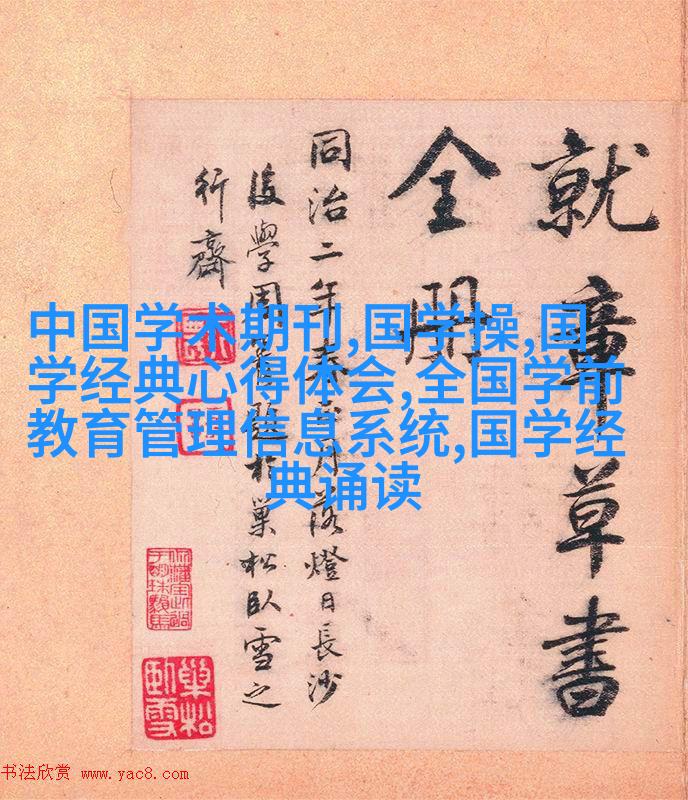 就章草書
全
同治二年春正月落燈日長沙
後學周於巢松臥雪之
行齋
中国学术期刊,国学操,国
学经典心得体会,全国学前
教育管理信息系统,国学经
典诵读
巢松
臥雪
书法欣赏 www.yac8.com